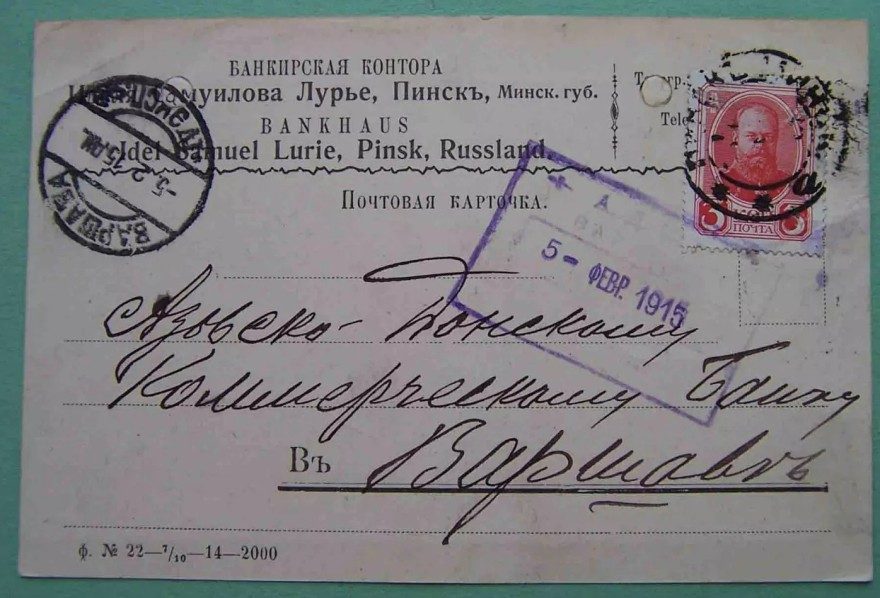 БАНКИРСКАЯ КОНТОРА
Самуилова Лурье, Пинскъ, Минск. губ.
BANKHAUS
Samuel Lurie, Pinsk, Russland.
Почтовая карточка.
ВАРШАВА
5. 2. 15
5 - ФЕВР. 1915
3 КОП. 3
ПОЧТА
Азовско-Донскому
Коммерческому Банку
Въ Варшавѣ
ф. № 22—7/10—14—2000